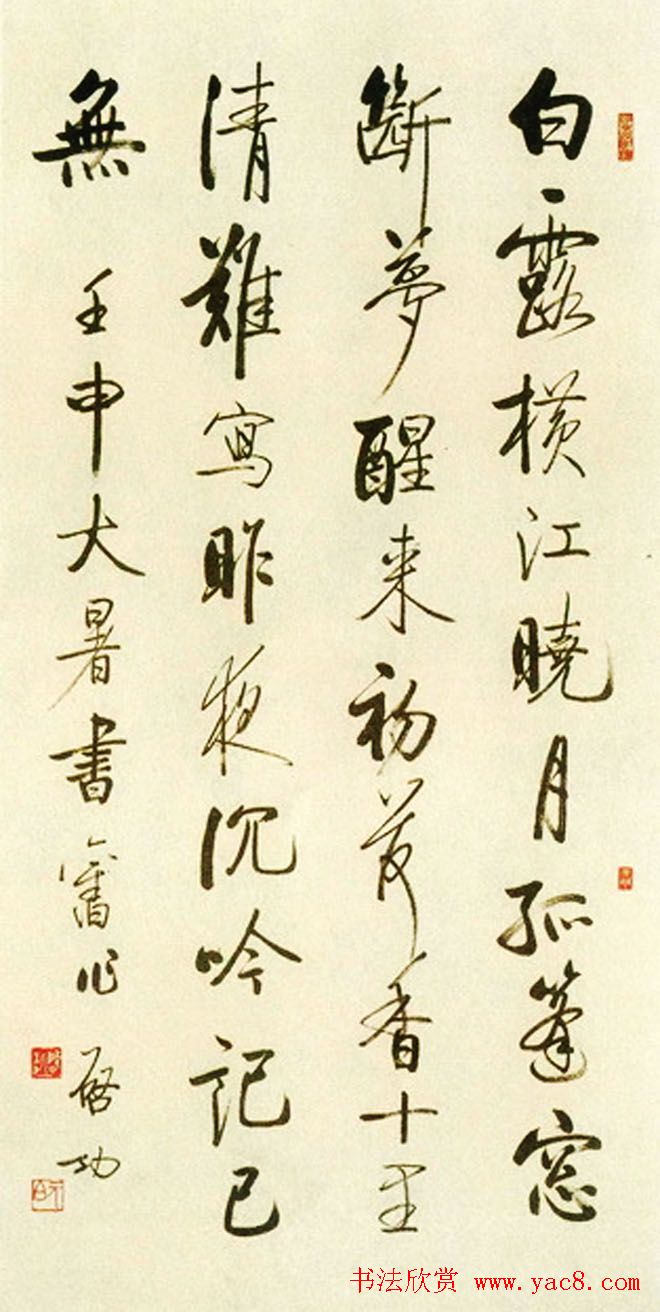 白露橫江曉月孤篷窓
斷夢醒来初荷香十里
清難寫昨夜沉吟記已
無 壬申大暑書舊作 啓功
书法欣赏 www.yac8.com